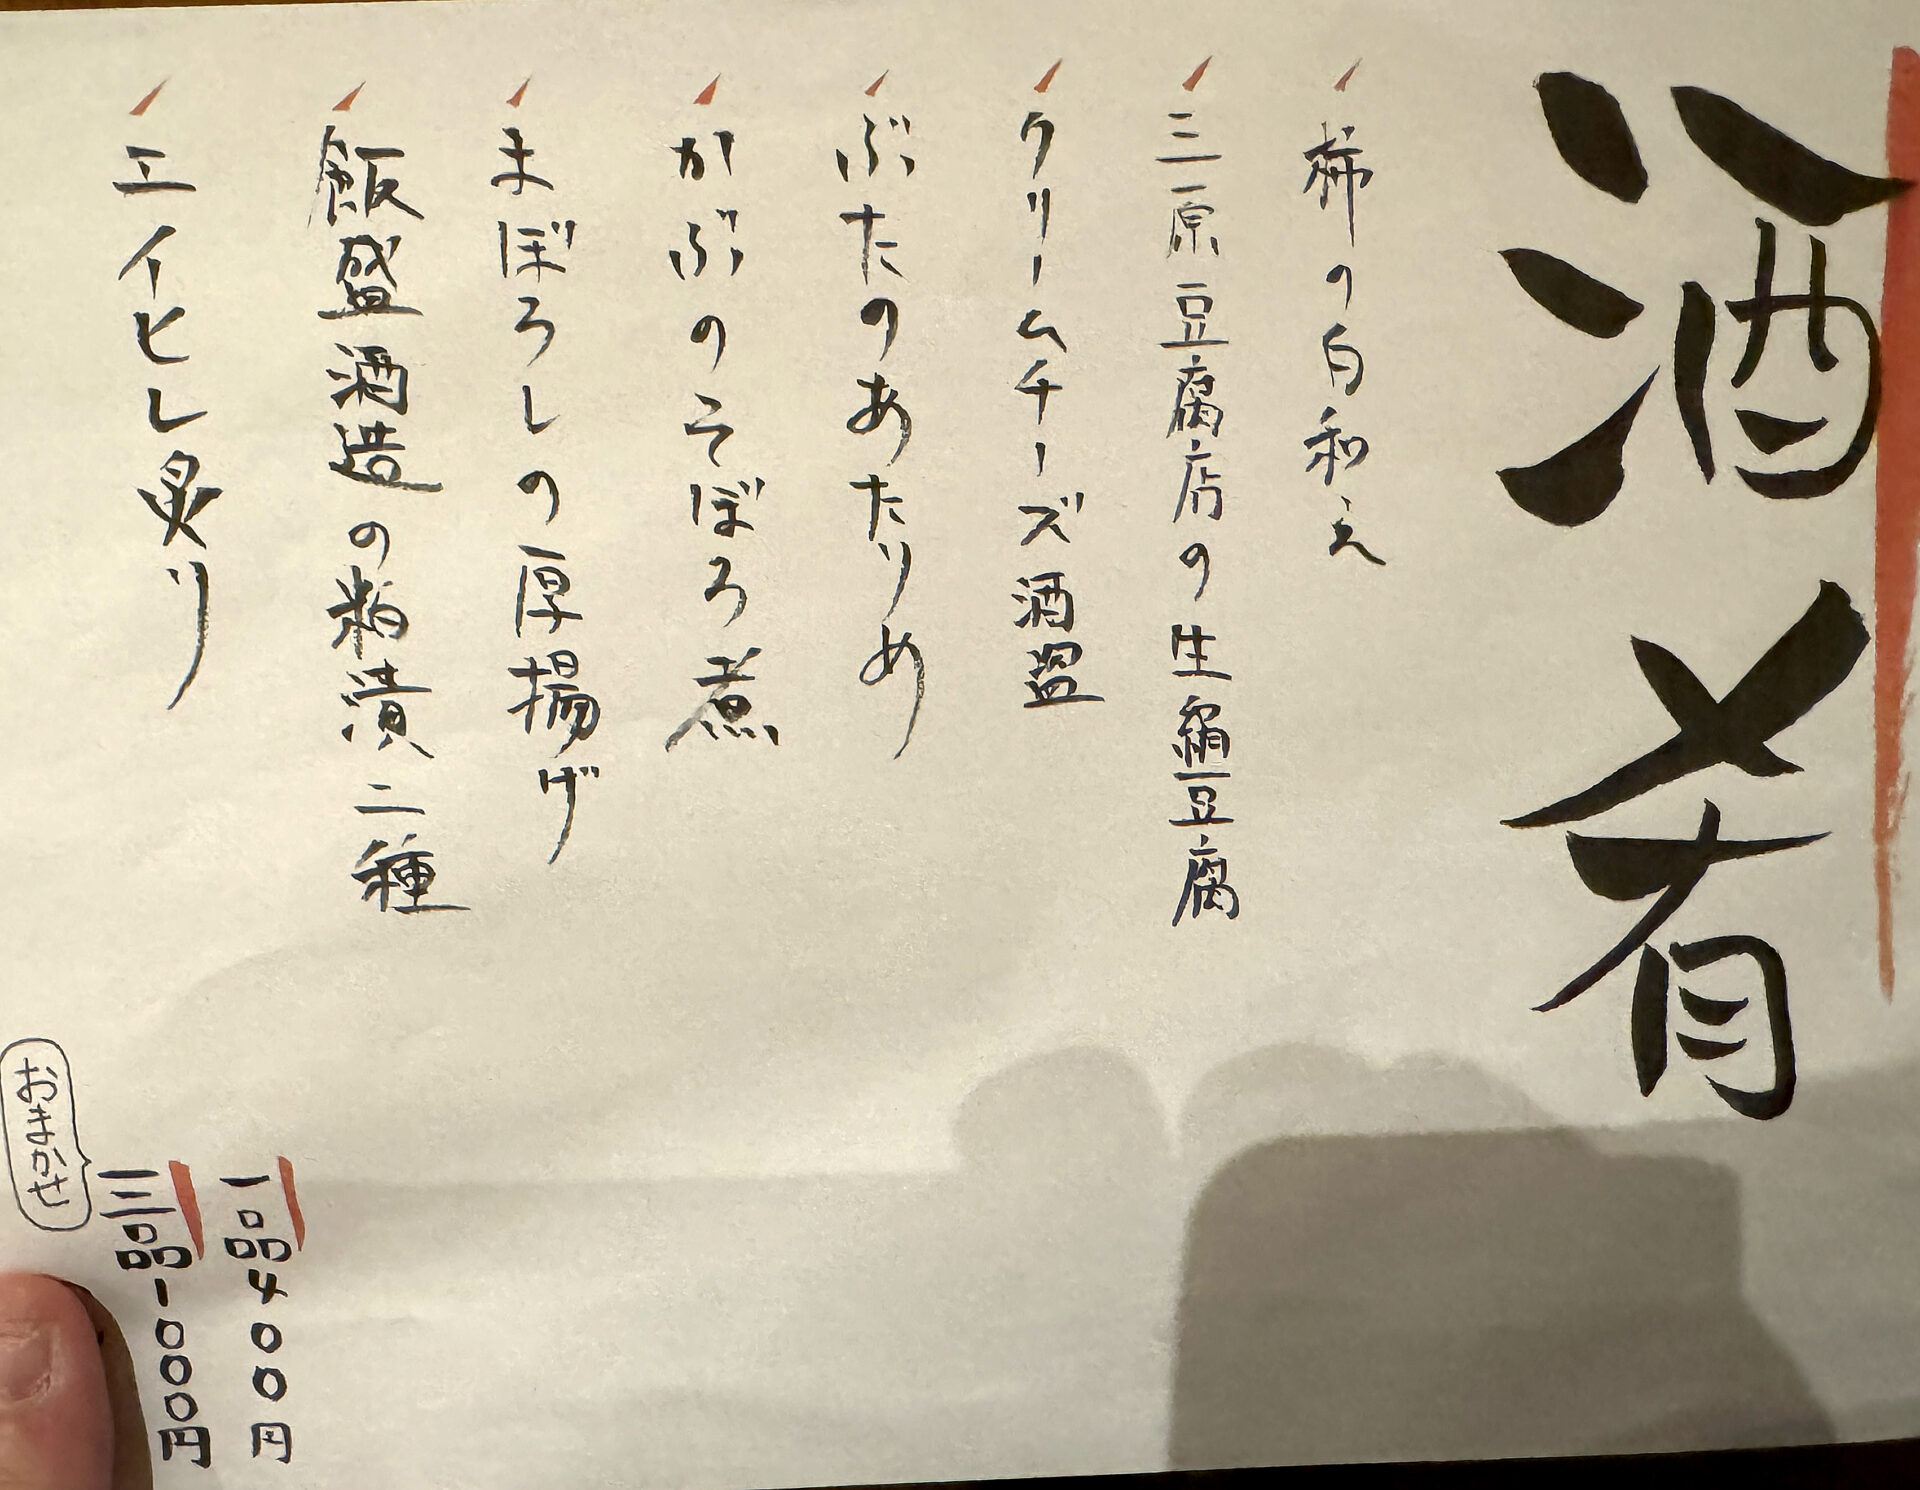 酒肴
柿の白和え
三原豆腐店の生豆腐
クリームチーズ酒盗
ぶたのあたりめ
かぶのそぼろ煮
まぼろしの厚揚げ
飯盛酒造の粕漬二種
エイヒレ炙り
一品400円
三品1000円
おまかせ